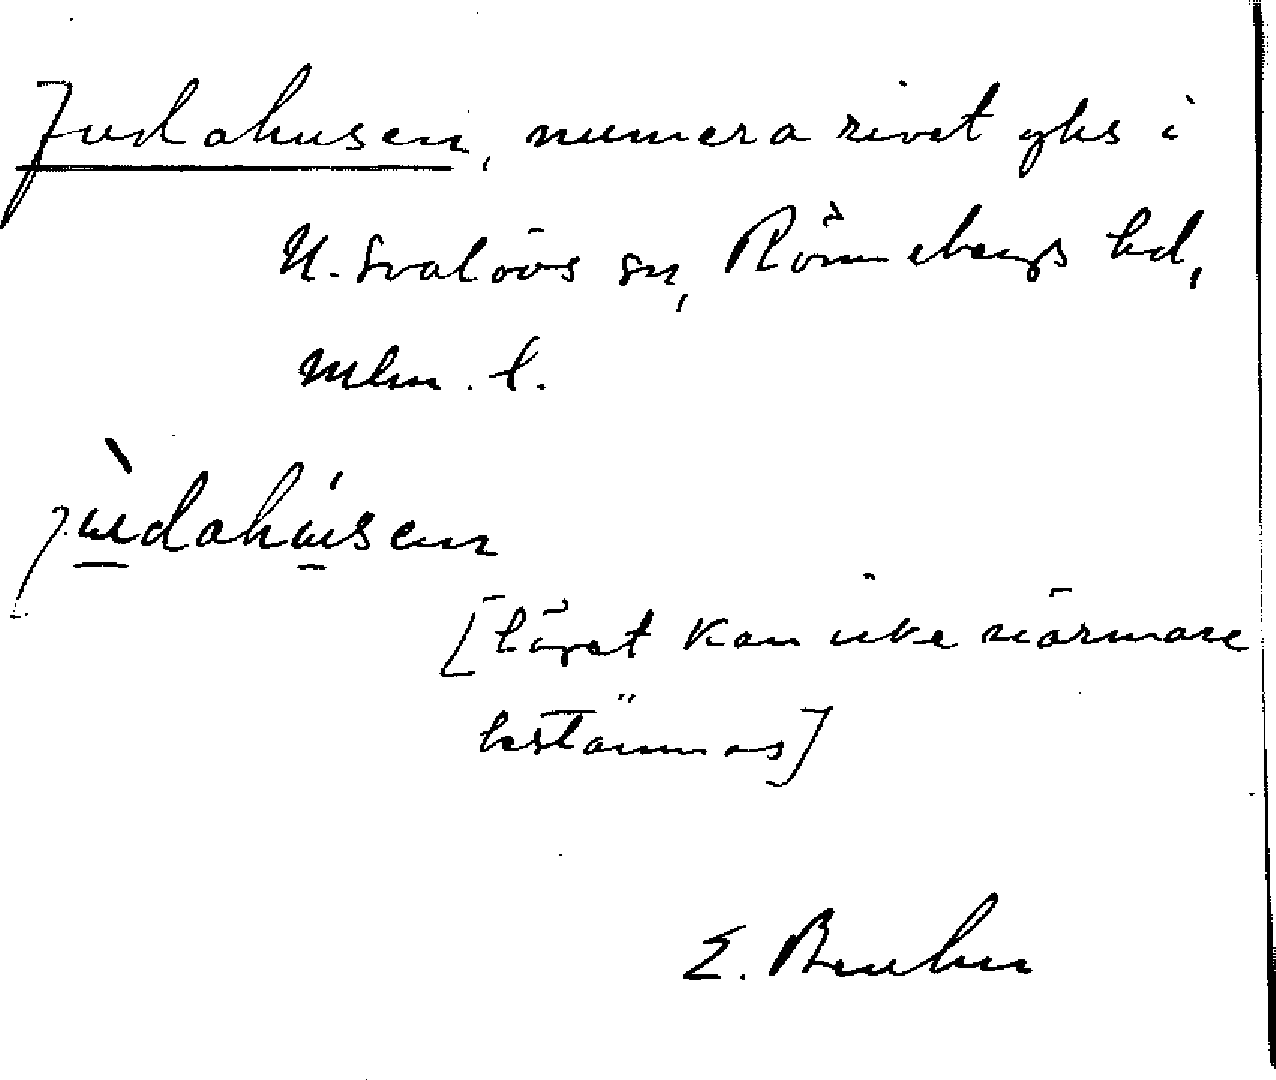 Judahusen, numera rivet ghs i
N. Svalövs sn, Rönnebergs hd,
Mlm. l.
jùdahúsen
[läget kan icke närmare
bestämmas]
E.